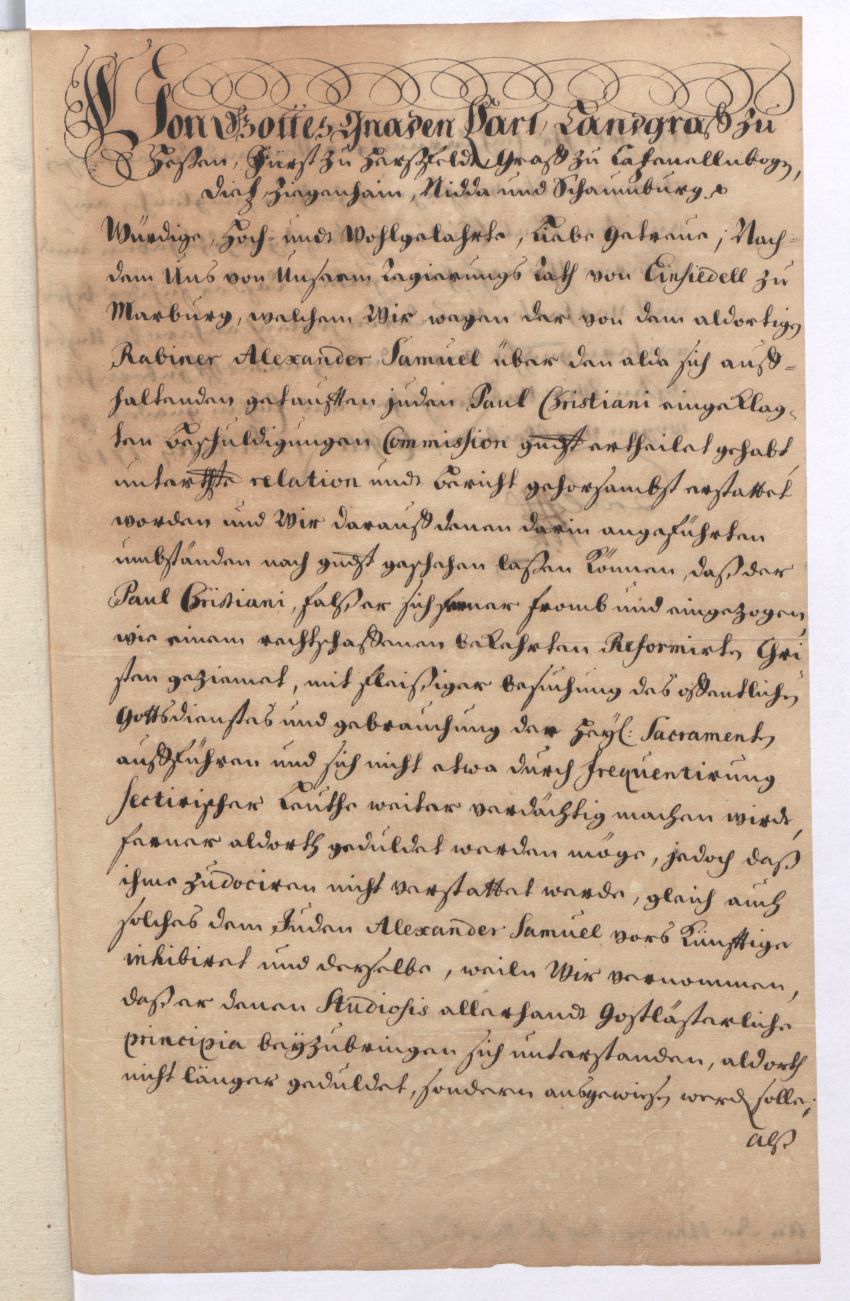 Von Gottes Gnaden Carl, Landgraff zu
Heßen, Fürst zu Herßfeldt, Graff zu Catzenellnbogen,
Dietz, Ziegenhain, Nidda und Schaumburg p
Würdige, Hoch- undt Wohlgelahrte, Liebe Getreue; Nach-
dem Uns von Unserm Regierungs Rath von Einsiedell zu
Marburg, welchem Wir wegen der von dem aldortigen
Rabiner Alexander Samuel über den alda sich auff-
haltenden getaufften juden Paul Christiani eingeklag-
ten Beschuldigungen Commission gndst ertheilet gehabt,
unterthste relation undt Bericht gehorsambst erstattet
worden und Wir darauff denen darin angeführten
umbständen nach gndst geschehen laßen können, daß der
Paul Christiani, falß er sich ferner fromb und eingezogen,
wie einem rechtschaffenen bekehrten Reformirten Chri-
sten geziemet, mit fleißiger besuchung des offentlichen
Gottsdienstes und gebrauchung der Heyl: Sacramenten
auffführen und sich nicht etwa durch frequentirung
sectirischer Leuthe weiter verdächtig machen wirdt,
ferner aldorth geduldet werden möge, jedoch daß
ihme zu dociren nicht verstattet werde, gleich auch
solches dem Juden Alexander Samuel vors künfftige
inhibiret und derselbe, weiln Wir vernommen,
daß er denen Studiosis allerhandt Gostlästerliche
principia beyzubringen sich unterstanden, aldorth
nicht länger geduldet, sondern ausgewiesen werden solle;
alß